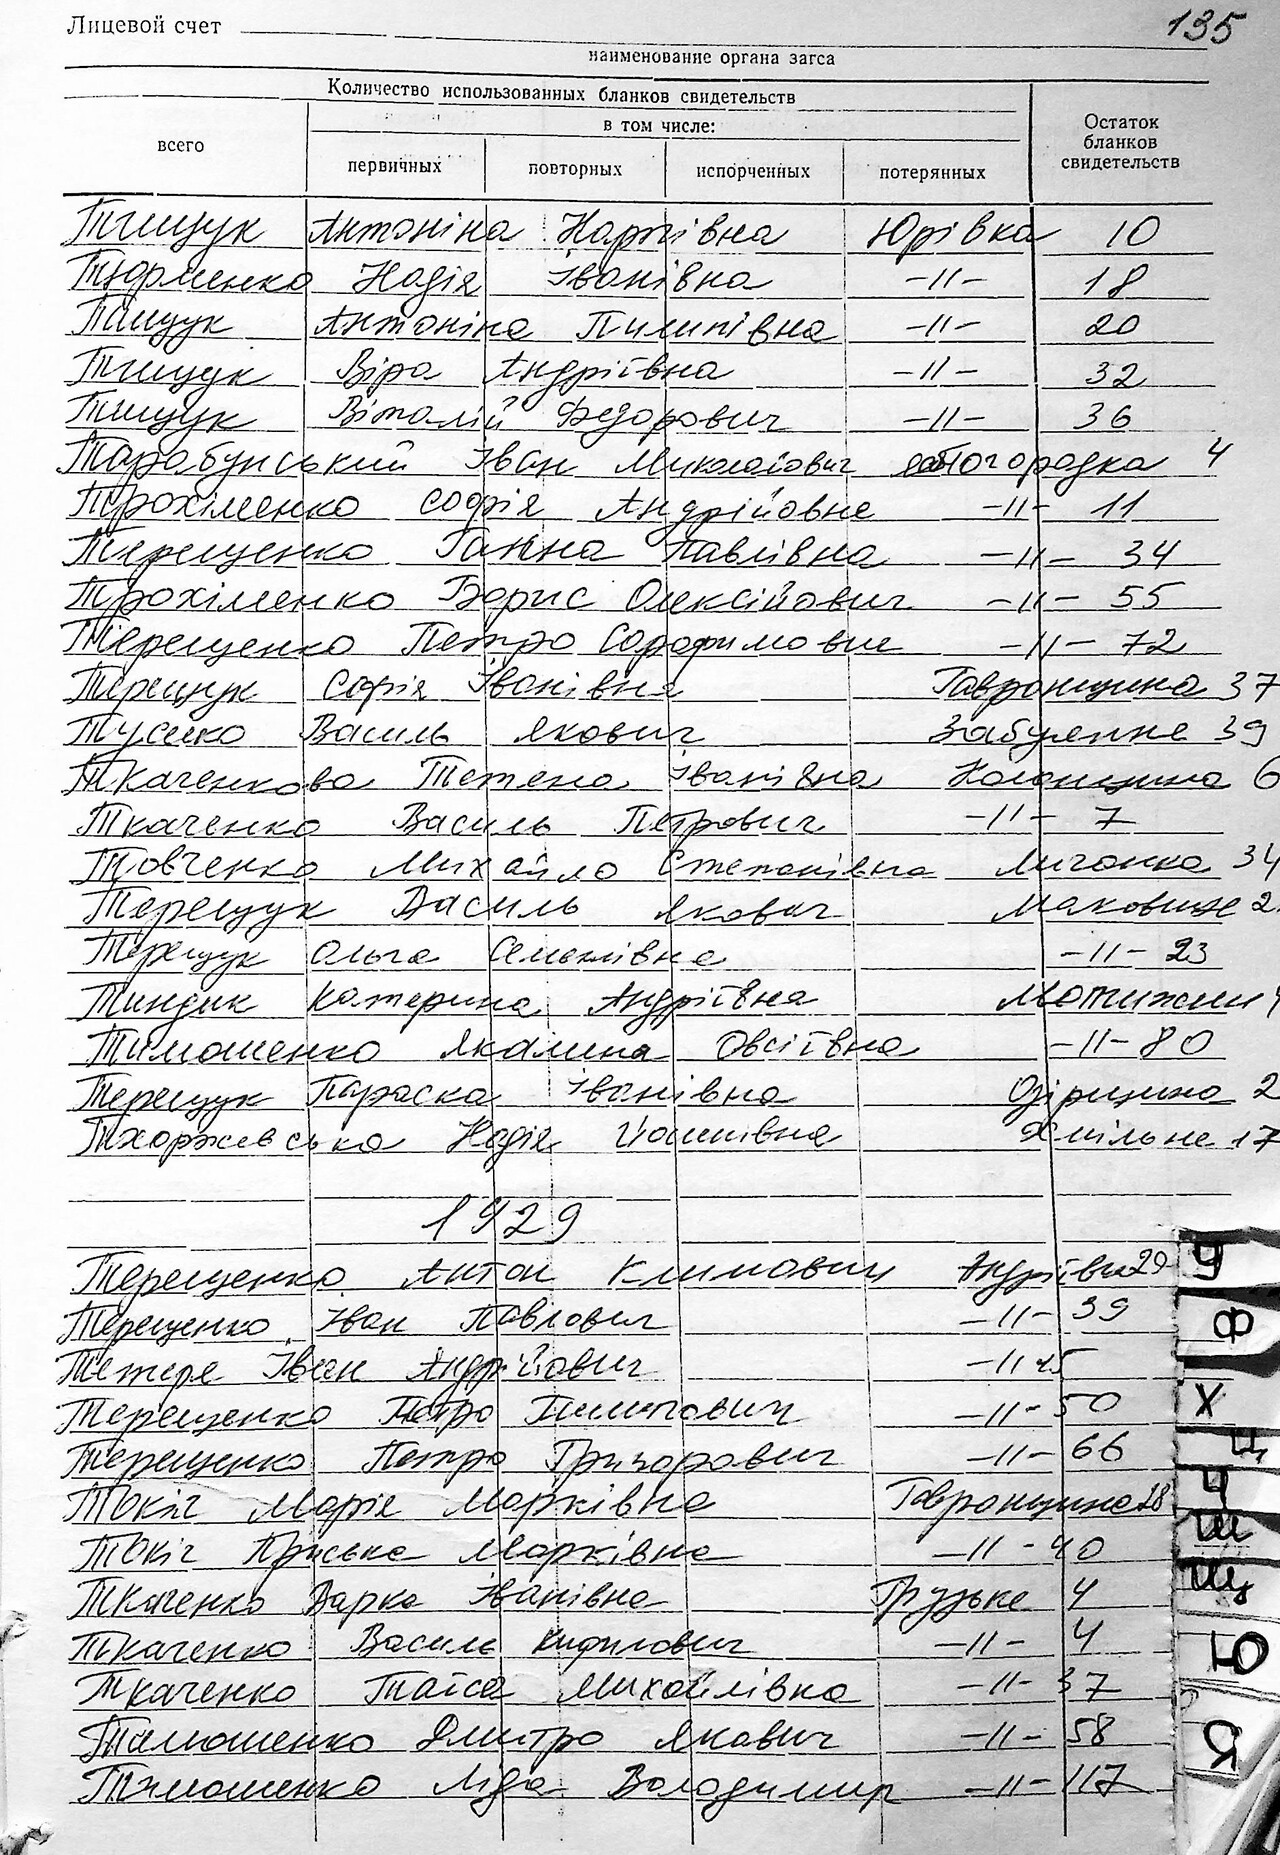 135
Лицевой счет
наименование органа загса
Количество использованных бланков свидетельств
в том числе:
всего первичных повторных испорченных потерянных Остаток бланков свидетельств
Тищук Антоніна Карпівна Юрівка 10
Тюрменко Надія Іванівна -11- 18
Тищук Антоніна Пилипівна -11- 20
Тищук Віра Андріївна -11- 32
Тищук Віталій Федорович -11- 36
Тарабунський Іван Миколайович 4
Трохіменко Софія Андрійовна -11- 11
Терещенко Ганна Павлівна -11- 34
Трохіменко Борис Олексійович -11- 55
Терещенко Петро -11- 72
Терещук Софія Іванівна Гавронщина 37
Василь Якович Забуяння 39
Ткаченкова Тетяна Іванівна Колонщина 6
Ткаченко Василь Петрович -11- 7
Товченко Михайло Степанівна Личанка 34
Терещук Василь Якович 2
Терещук Ольга Семенівна -11- 23
Катерина Андріївна Мотижин
Тимошенко Якилина Овсіївна -11- 80
Терещук Параска Іванівна Озірщина 2
Тхоржевська Надія Хмільна 17
1929
Терещенко Антон Климович Андріївка 29
Терещенко Іван Павлович -11- 39
Тетеря Іван Андрійович -11
Терещенко Петро Пилипович -11- 50
Терещенко Петро Григорович -11- 66
Токіг Марія Марківна Гавронщина 28
Токіг Пріська Марківна -11- 40
Ткаченко Варка Іванівна Грузьке 4
Ткаченко Василь Кирилович -11- 4
Ткаченко Таїса Михайлівна -11- 37
Тимошенко Дмитро Якович -11- 58
Тимошенко Ліда Володимир -11- 117
У
Ф
Х
Ц
Ч
Ш
Щ
Ю
Я